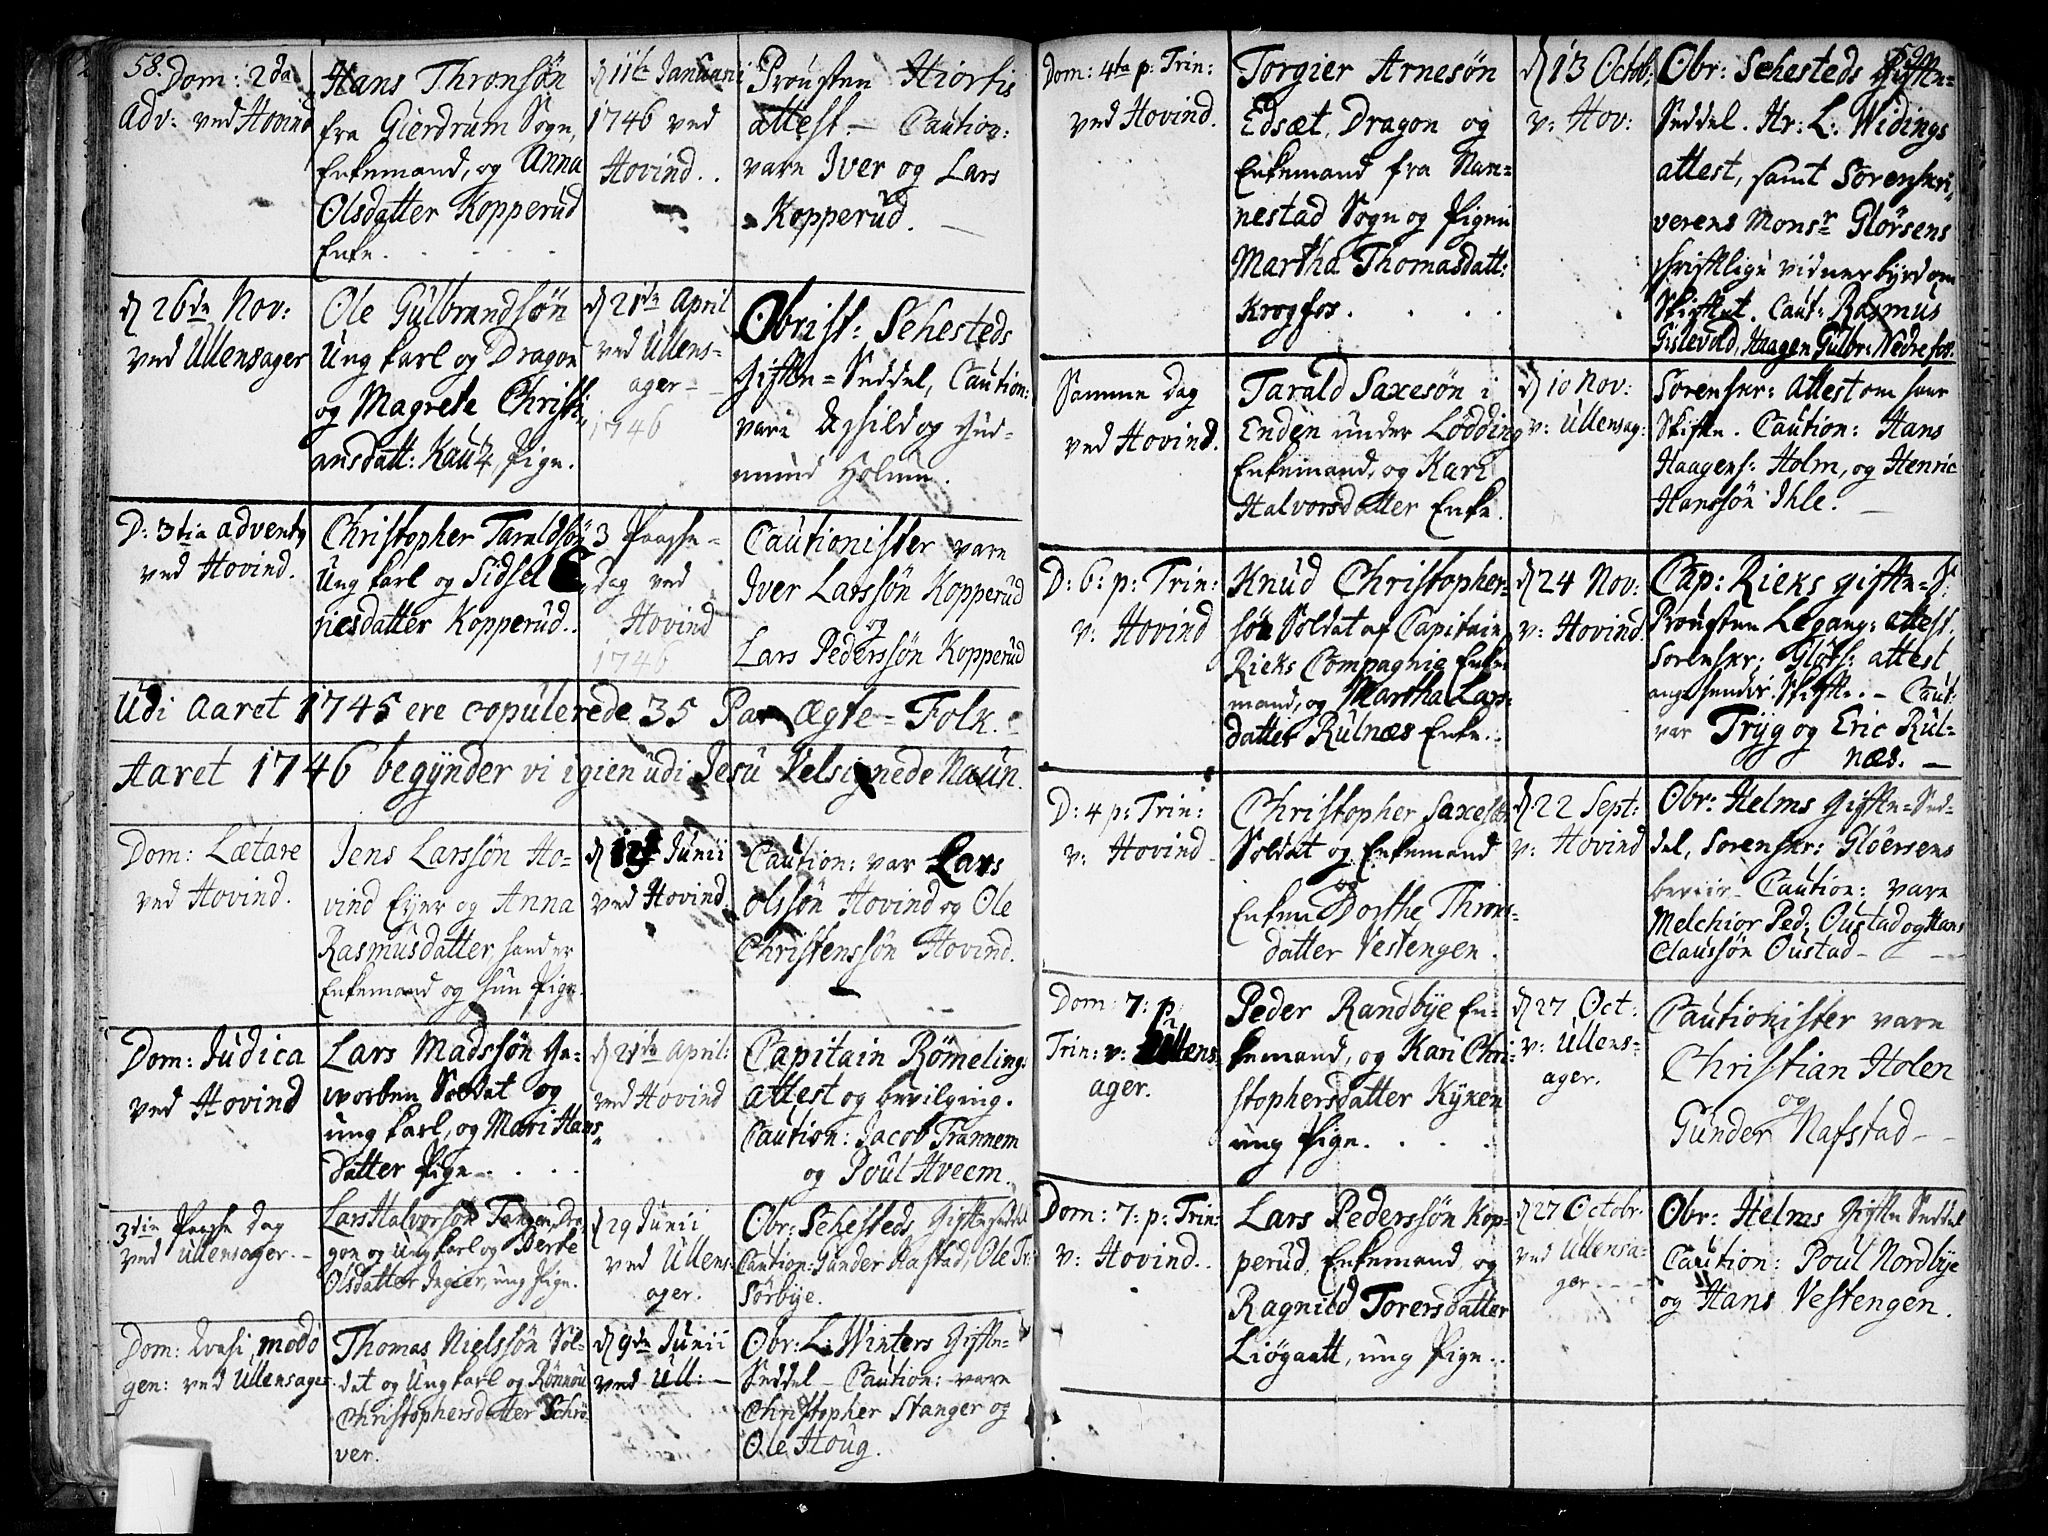 58.
Dom: 2da
Adv: ved Hovind
Hans Thronsøn
fra Gierdrum Sogn,
Enkemand, og Anna
Olsdatter Kopperud
Enke.
d 11te Januarii
1746 ved
Hovind.
Prousten Hiortis
attest. - Caution:
vare Iver og Lars
Kopperud.
d 26de Nov:
ved Ullensager
Ole Gulbrandsøn
Ung karl og Dragon
og Magrete Christi,,
ansdatt: Kautz, Pige.
d 21de April
ved Ullens-
ager
1746
Obrist: Sehesteds
Gifte=Seddel, Caution:
vare og Gud-
mund Holum.
D: 3tia advent,
ved Hovind.
Christopher Taraldsøn
Ung karl og Sidsel E,,
riesdatter Kopperud.
3 Paaske-
dag ved
Hovind
1746
Cautionister vare
Iver Larssøn Kopperud
og
Lars Pederssøn Kopperud
Udi Aaret 1745 ere copulerede 35 Par Ægte=Folk.
Aaret 1746 begynder vi igien udi Jesu Velsignede Naun.
Dom: Lætare
ved Hovind.
Jens Larssøn Ho-
vind Eyer og Anna
Rasmusdatter, hand er
Enkemand og hun Pige.
d 12 Junii
ved Hovind.
Caution: var Lars
Olssøn Hovind og Ole
Christenssøn Hovind.
Dom: Judica
ved Hovind
Lars Madssøn Ge-
vorben Soldat og
ung karl, og Mari Hans,,
datter Pige
d 21de April:
ved Hovind
Capitain Rømelings
attest og bevilgning.
Caution: Jacob Trannem
og Poul Hveem.
3die Paaske dag
ved Ullensager.
Lars Halvorsøn Tangen, Dra-
gon og Ung karl og Berte
Olsdatter Ingier, ung Pige.
d 29 Junii
ved Ullens-
ager.
Obr: Sehesteds Gifteseddel
Caution: Gunder Nafstad, Ole Tr:
Sørbye.
Dom: Qvasi modo
gen: ved Ullensager
Thomas Nielssøn Sol-
dat og Ung karl og Rønnou
Christophersdatter Schrø-
ver.
d 9de Junii
ved Ull:
Obr: L: Winters Gifte-
Seddel - Caution: vare
Christopher Stanger og
Ole Houg.
59.
Dom: 4ta p: Trin:
ved Hovind.
Torgier Arnesøn
Edsæt, Dragon og
Enkemand fra Nan=
nestad Sogn og Pigen
Martha Thomasdatt:
Krogfos.
d 13 Octob:
v: Hov:
Obr: Sehesteds Gifte=
Seddel. Hr: L: Widings
attest, samt Sorenskri,,
verens Monsr Glørsens
skriftlige vidnesbyrd om
Skiftet. Caut: Rasmus
Gislevold, Haagen Gulbr: Nedrefos.
Samme Dag
ved Hovind.
Tarald Saxesøn i
Enden under Lødding
Enkemand, og Kari
Halvorsdatter Enke.
d 10 Nov:
v: Ullensag:
Sorenskr: Attest om
Skifte. Caution: Hans
Haagens: Holm, og Henric
Hanssøn Ihle.
D: 6: p: Trin:
v: Hovind
Knud Christopher-
søn Soldat af Capitain
Rieks Compagnie Enke
mand, og Martha Lars-
datter Rulnæs Enke.
d 24 Nov:
v: Hovind
Cap: Rieks gifte=S:
Prousten Legang: attest.
Sorenskr: Glørs: attest
Skifte. - Caut:
var Tryg og Eric Rul-
næs.
D: 4 p: Trin:
v: Hovind
Christopher Saxesøn
Soldat og Enkemand
og
Enken Dorthe Throns-
datter Vestengen.
d 22 Sept:
v: Hovind
Obr: Helms Gifte=Sed-
del, Sorenskr: Glöersens
beviis - Caution: vare
Melchior Ped: Oustad og Hans
Claussøn Oustad
Dom: 7: p:
Trin: v: Ullens
ager.
Peder Randbye En-
kemand, og Kari Chri-
stophersdatter Kyxen
ung Pige.
d 27 Oct:
v: Ullens-
ager.
Cautionister vare
Christian Holen
og
Gunder Nafstad
Dom: 7: p: Trin:
v: Hovind.
Lars Pederssøn Kop-
perud, Enkemand og
Ragnild Torersdatter
Liøgaatt, ung Pige.
d 27 Octobr.
ved Ullensa-
ger
Obr: Helms Gifte Seddel
Caution: Poul Nordbye
og Hans Vestengen.